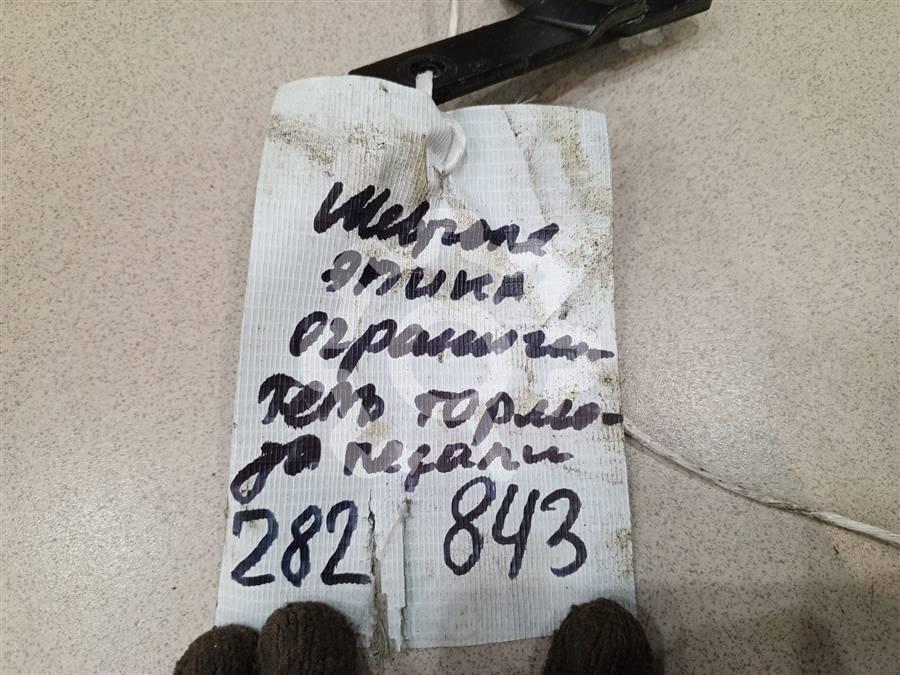 Шевроле
эпика
ограничи-
тель тормо-
за педали
282 843